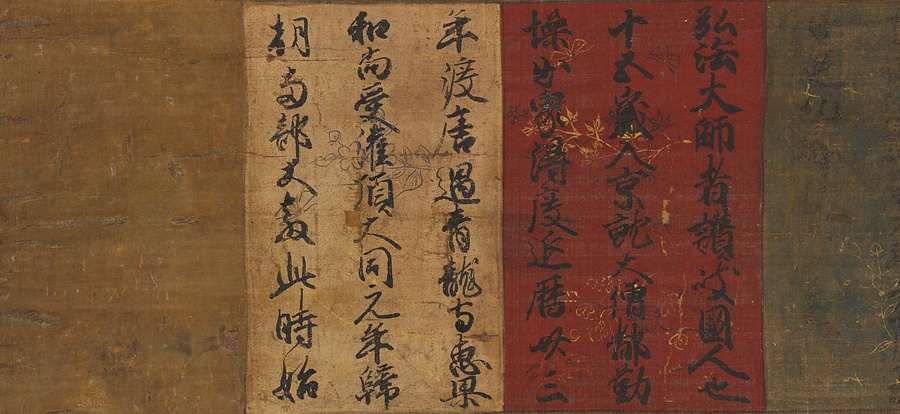 弘法大師者讃岐國人也
十五歳入京就大僧都勤
操出家得度延暦廿三
年渡唐遇青龍寺惠果
和尚受灌頂大同元年歸
朝両部大教此時始